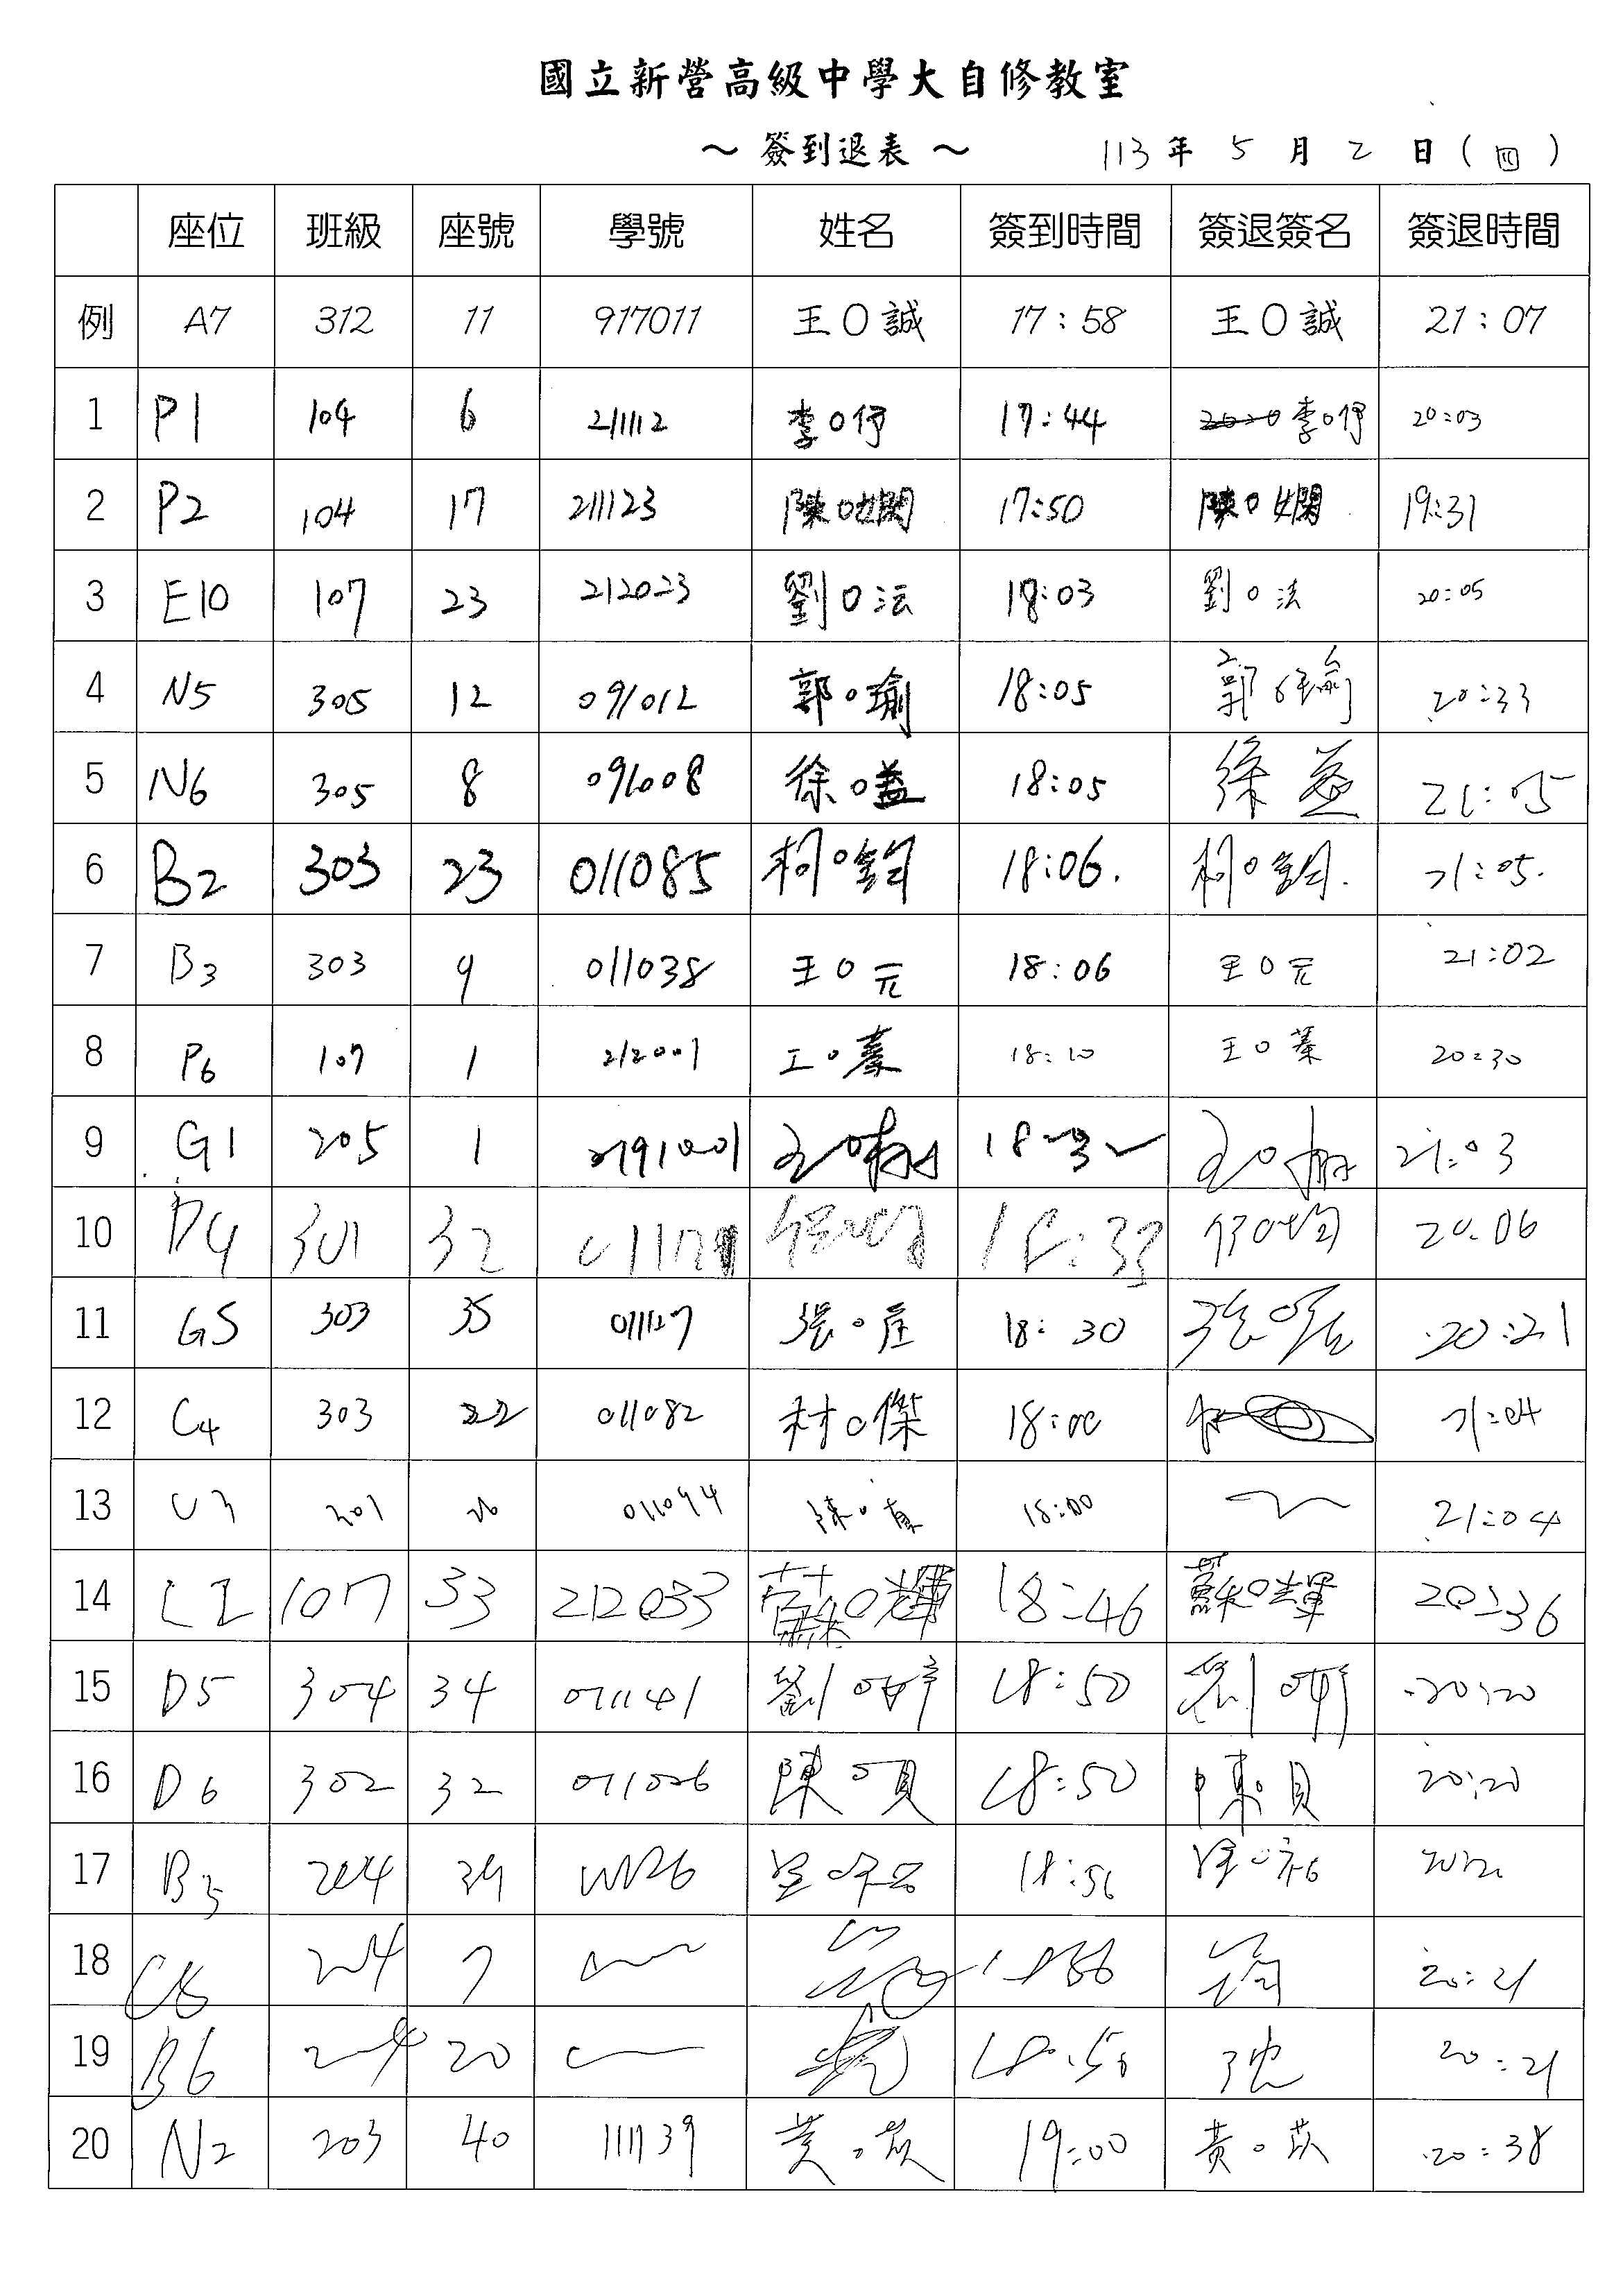 國立新營高級中學大自修教室
～ 簽到退表 ～ 113 年 5 月 2 日 ( 四 )
座位 班級 座號 學號 姓名 簽到時間 簽退簽名 簽退時間
例 A7 312 11 917011 王O誠 17:58 王O誠 21:07
1 P1 104 6 211112 李O伃 17:44 李O伃 20:03
2 P2 104 17 211123 陳O嫻 17:50 陳O嫻 19:31
3 E10 107 23 212023 劉O法 18:03 劉O法 20:05
4 N5 305 12 091012 郭O瑜 18:05 郭 瑜 20:33
5 N6 305 8 091008 徐O益 18:05 徐 益 21:05
6 B2 303 23 011085 柯O鈞 18:06. 柯O鈞. 21:05.
7 B3 303 9 011038 王O元 18:06 王O元 21:02
8 P6 107 1 212001 王O蓁 18:10 王O蓁 20:30
9 G1 205 1 18 21:03
10 D4 301 32 20:06
11 G5 303 35 張O 18:30 張O 20:21
12 C4 303 22 011082 O傑 18:00 21:04
13 011094 陳O 18:00 21:04
14 107 33 212033 蘇O輝 18:46 蘇O輝 20:36
15 D5 304 34 011141 劉O婷 18:50 劉O婷 20:20
16 D6 302 32 陳O貝 18:50 陳O貝 20:20
17 B5 204 18:56
18 204 7 20:21
19 B6 204 20 18:56 20:21
20 N2 203 40 111139 黃O苡 19:00 黃O苡 20:38